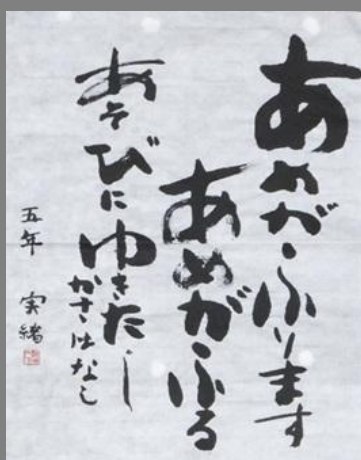 あめがふります
あめがふる
あそびにゆきたし
かさはなし
五年 実緒